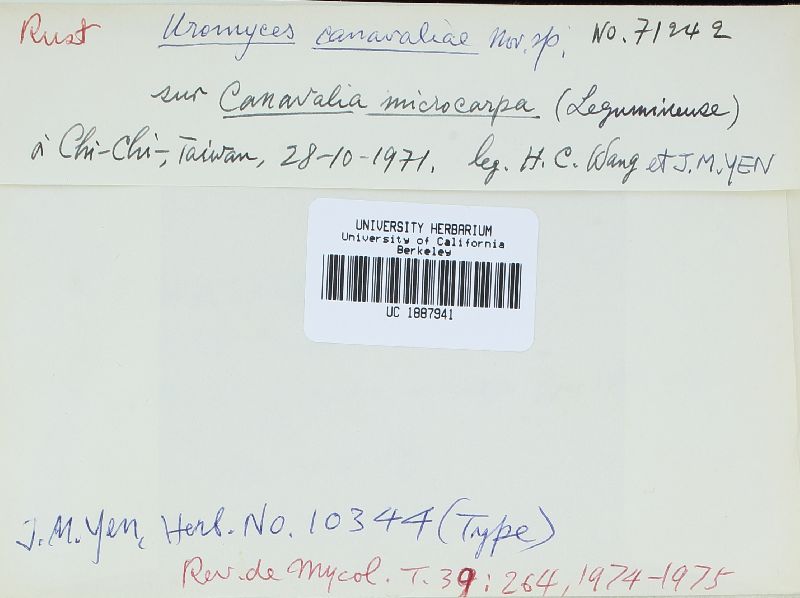 Rust Uromyces canavaliae nov. sp. No. 71242
sur Canavalia microcarpa (Legumineuse)
à Chi-Chi-, Taiwan, 28-10-1971. leg. H. C. Wang et J.M.YEN
UNIVERSITY HERBARIUM
University of California
Berkeley
UC 1887941
J.M.Yen, Herb. No. 10344 (Type)
Rev. de Mycol. T. 39: 264, 1974-1975